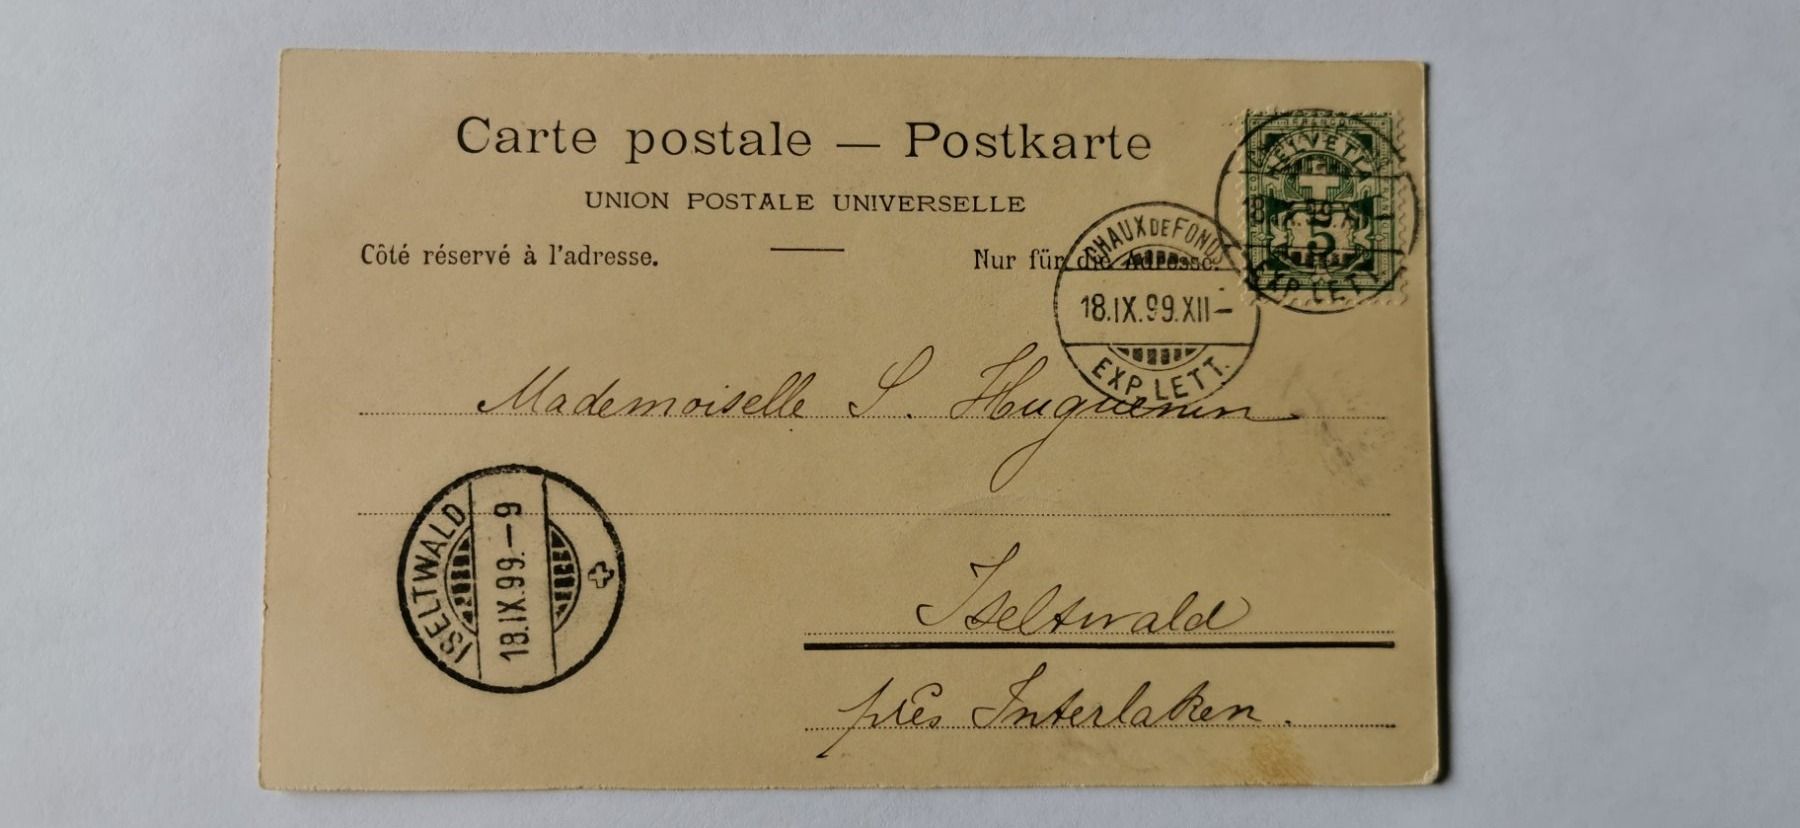 Carte postale — Postkarte
UNION POSTALE UNIVERSELLE
Côté réservé à l'adresse.
Nur für die Adresse.
FRANCO
HELVETIA
5
18.IX.99.XII
EXP. LETT.
CHAUX DE FONDS
18.IX.99.XII—
EXP. LETT.
Mademoiselle S. Huguenin
ISELTWALD
18.IX.99.—9
Iseltwald
près Interlaken.